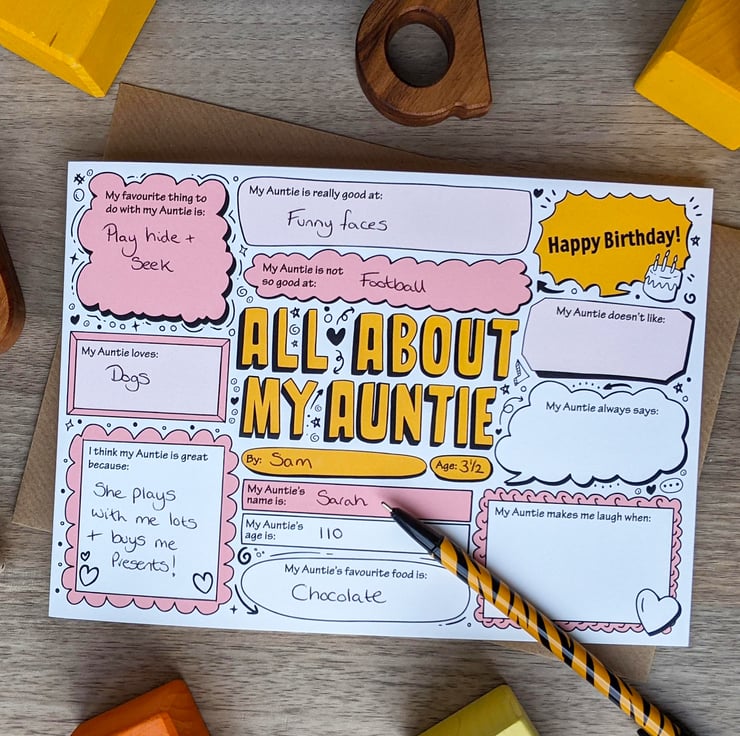 My favourite thing to
do with my Auntie is:
Play hide +
Seek
My Auntie is really good at:
Funny faces
My Auntie is not
so good at:
Football
Happy Birthday!
My Auntie doesn't like:
My Auntie loves:
Dogs
ALL ABOUT
MY AUNTIE
My Auntie always says:
I think my Auntie is great
because:
She plays
with me lots
+ buys me
Presents!
By: Sam
Age: 3 1/2
My Auntie's
name is:
Sarah
My Auntie's
age is:
110
My Auntie's favourite food is:
Chocolate
My Auntie makes me laugh when: